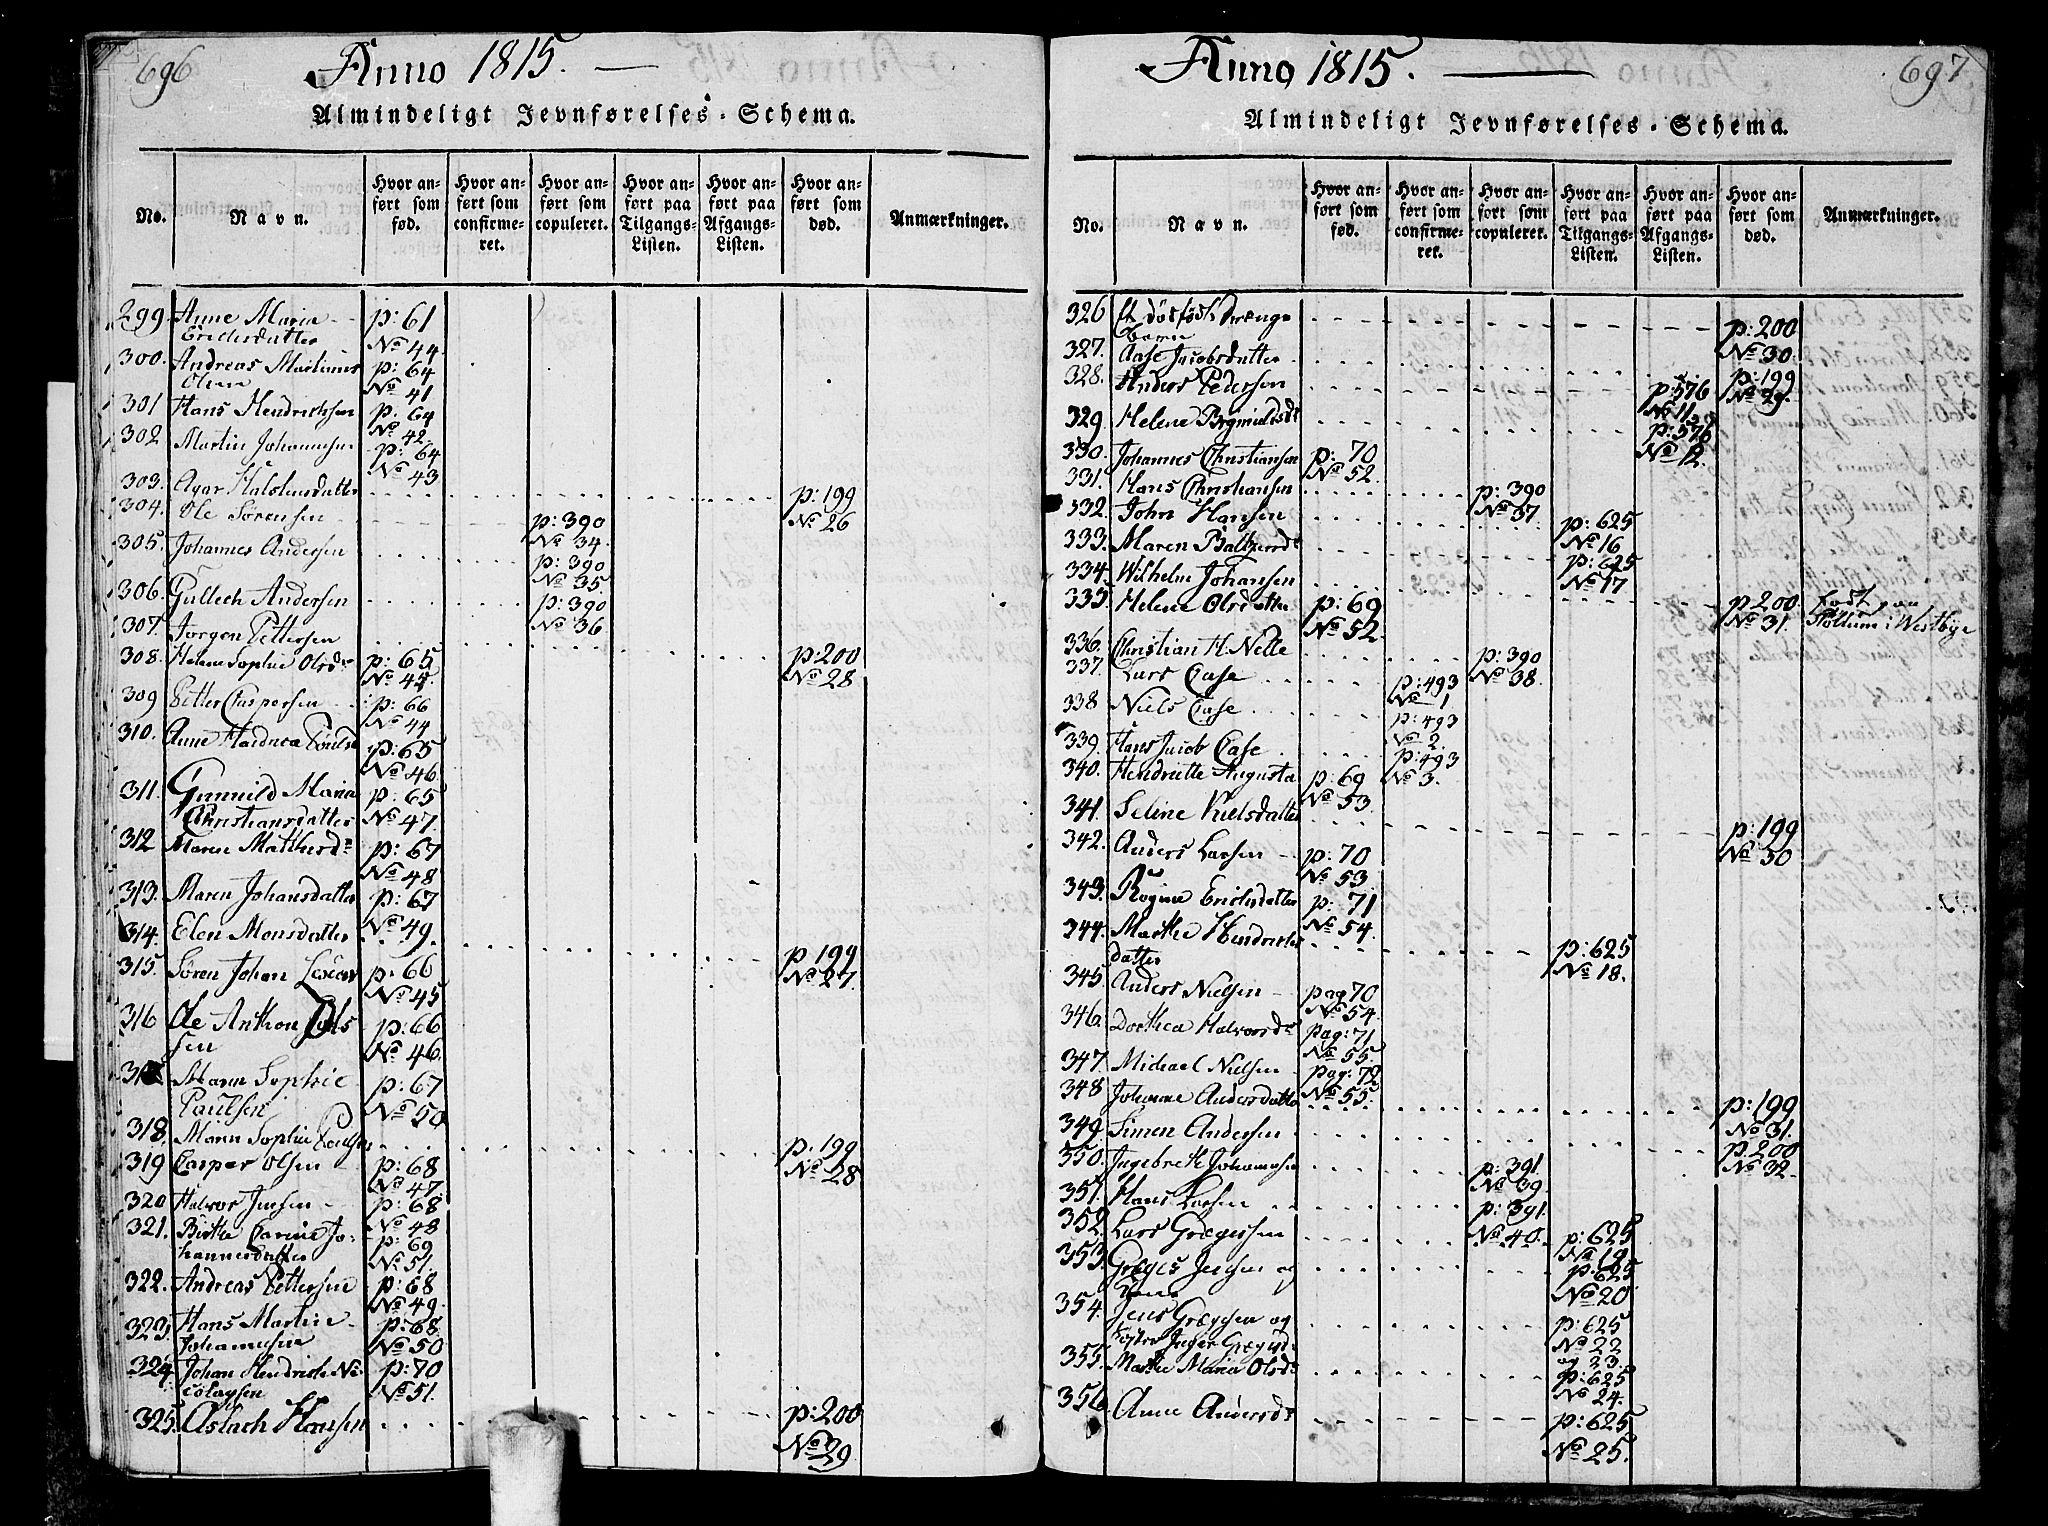 696
Anno 1815.
Almindeligt Jevnførelses-Schema.
No.
Navn.
Hvor an-
ført som
fød.
Hvor an-
ført som
confirme-
ret.
Hvor an-
ført som
copuleret.
Hvor an-
ført paa
Tilgangs-
Listen.
Hvor an-
ført paa
Afgangs-
Listen.
Hvor an-
ført som
død.
Anmærkninger.
299 Anne Maria p: 61
Erichsdatter No 44
300. Andreas Martinus p: 64
Olsen No 41
301 Hans Hendrichsen p: 64
No 42
302 Martin Johannesen p: 64
No 43
303. p: 199
No 26
304. Ole Sørensen p: 390
No 34.
305. Johannes Andersen p: 390
No 35
306. Gullech Andersen p: 390
No 36
307. Jørgen Pettersen p: 200
No 28
308. Helene Sophie Olsdr p: 65
No 45
309 Petter Caspersen p: 66
No 44
310. Anne p: 65
No 46
311. Gunnild Maria p: 65
Christiansdatter No 47.
312 Maren p: 67
No 48
313. Maren Johansdatter p: 67
No 49.
314. Elen Monsdatter p 199
No 27.
315. Søren Johan p: 66
No 45
316 Ole Anthon Ols p: 66
sen No 46
Maren Sophie p: 67
Paulsen No 50
318. Maren Sophie p: 199
No 28
319 Casper Olsen p: 68
No 47
320 Halvor Jensen p: 68
No 48
321. Birthe Carine Jo- p: 69
hannesdatter No 51.
322. Andreas Pettersen p: 68
No 49.
323. Hans Martin p: 68
Johannesen No 50
324 Johan Hendrich Ni p: 70
colaysen No 51.
325. Aslach Hansen p: 200
No 29
697
Anno 1815.
Almindeligt Jevnførelses-Schema.
No.
Navn.
Hvor an-
ført som
fød.
Hvor an-
ført som
confirme-
ret.
Hvor an-
ført som
copuleret.
Hvor an-
ført paa
Tilgangs-
Listen.
Hvor an-
ført paa
Afgangs-
Listen.
Hvor an-
ført som
død.
Anmærkninger.
326 Et dødfødt Drenge p: 200
Barn No 30
327. Aase Jacobsdatter p: 199
No 29.
328. Anders Pedersen p: 576
No 11
329 Helene p: 576
No 12.
330. Johannes Christiansen p: 70
No 52.
331. Hans Christiansen p: 390
No 37
332. John Hansen p: 625
No 16
333. Maren p: 625
No 17
334. Wilhelm Johansen p 200 Født
No 31. i Westbye
335. Helene Olsdatter p: 69
No 52.
336. Christian H. Nelle p: 390
No 38.
337. Lars Case p: 493
No 1
338 Niels Case p: 493
No 2.
339. Hans Jacob Case p: 493
No 3.
340. Hendriette Augusta p: 69
No 53.
341. Seline Nielsdatter p: 199
No 30
342. Anders Larsen p: 70
No 53.
343. Regine Erichsdatter p: 71
No 54.
344. Marthe Hendrichs p: 625
datter No 18.
345. Anders Nielsen pag 70
No 54.
346. Dorthea Halvorsdr pag: 71
No 55.
347. Michael Nielsen pag: 72
No 55.
348 Johanne Andersdatter p: 199
No 31.
349. Simen Andersen p: 200
No 32
350. Ingebreth Johannesen p: 391.
No 39.
351. Hans Larsen p: 391.
No 40.
352. Lars Grægersen p: 625
No 19
353. Græges Jensen og p: 625
No 20
354. Jens Græggsen og p: 625
Søster Inger No 22
og 23.
355. Marthe Maria Olsdr p: 625
No 24.
356. Anne Andersdr p: 625
No 25.